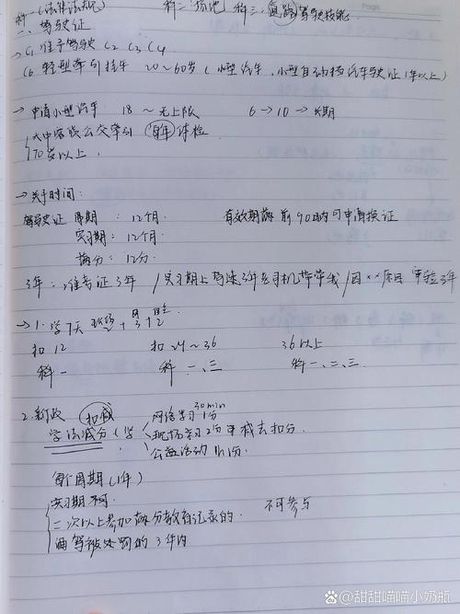 科一(法律法规) 科二 场地 科三:道路驾驶技能
一、驾驶证
→C1 准予驾驶 C2 C3 C4
C6 轻型牵引挂车 20~60岁 (小型汽车,小型自动挡汽车驾驶证1年以上)
→申请小型汽车 18~无上限 6→10→长期
大中客城公交牵引 每年体检
70岁以上
→关于时间:
驾驶证 周期:12个月 有效期满前90日内可申请换证
实习期:12个月
满分:12分
3年:准考证3年/实习期上高速3年老司机带带我/因××原因 审验3年
→1.学7天
扣12 扣24~36 36以上
科一 科一、三 科一、二、三
2.新政 扣减 网络学习 30min 1分
学法减分 学 现场学习 2分 可减去扣分
公益活动 1h1分
每个周期(1年)
实习期不可
二次以上参加满分教育记录的 不可参与
酒驾被处罚的3年内
@甜甜喵喵小奶瓶